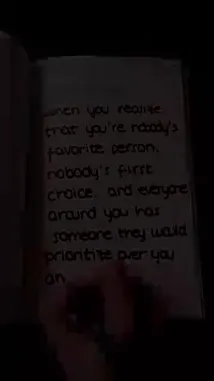 when you realize
that you're nobody's
favorite person,
nobody's first
choice, and everyone
around you has
someone they would
prioritize over you
an